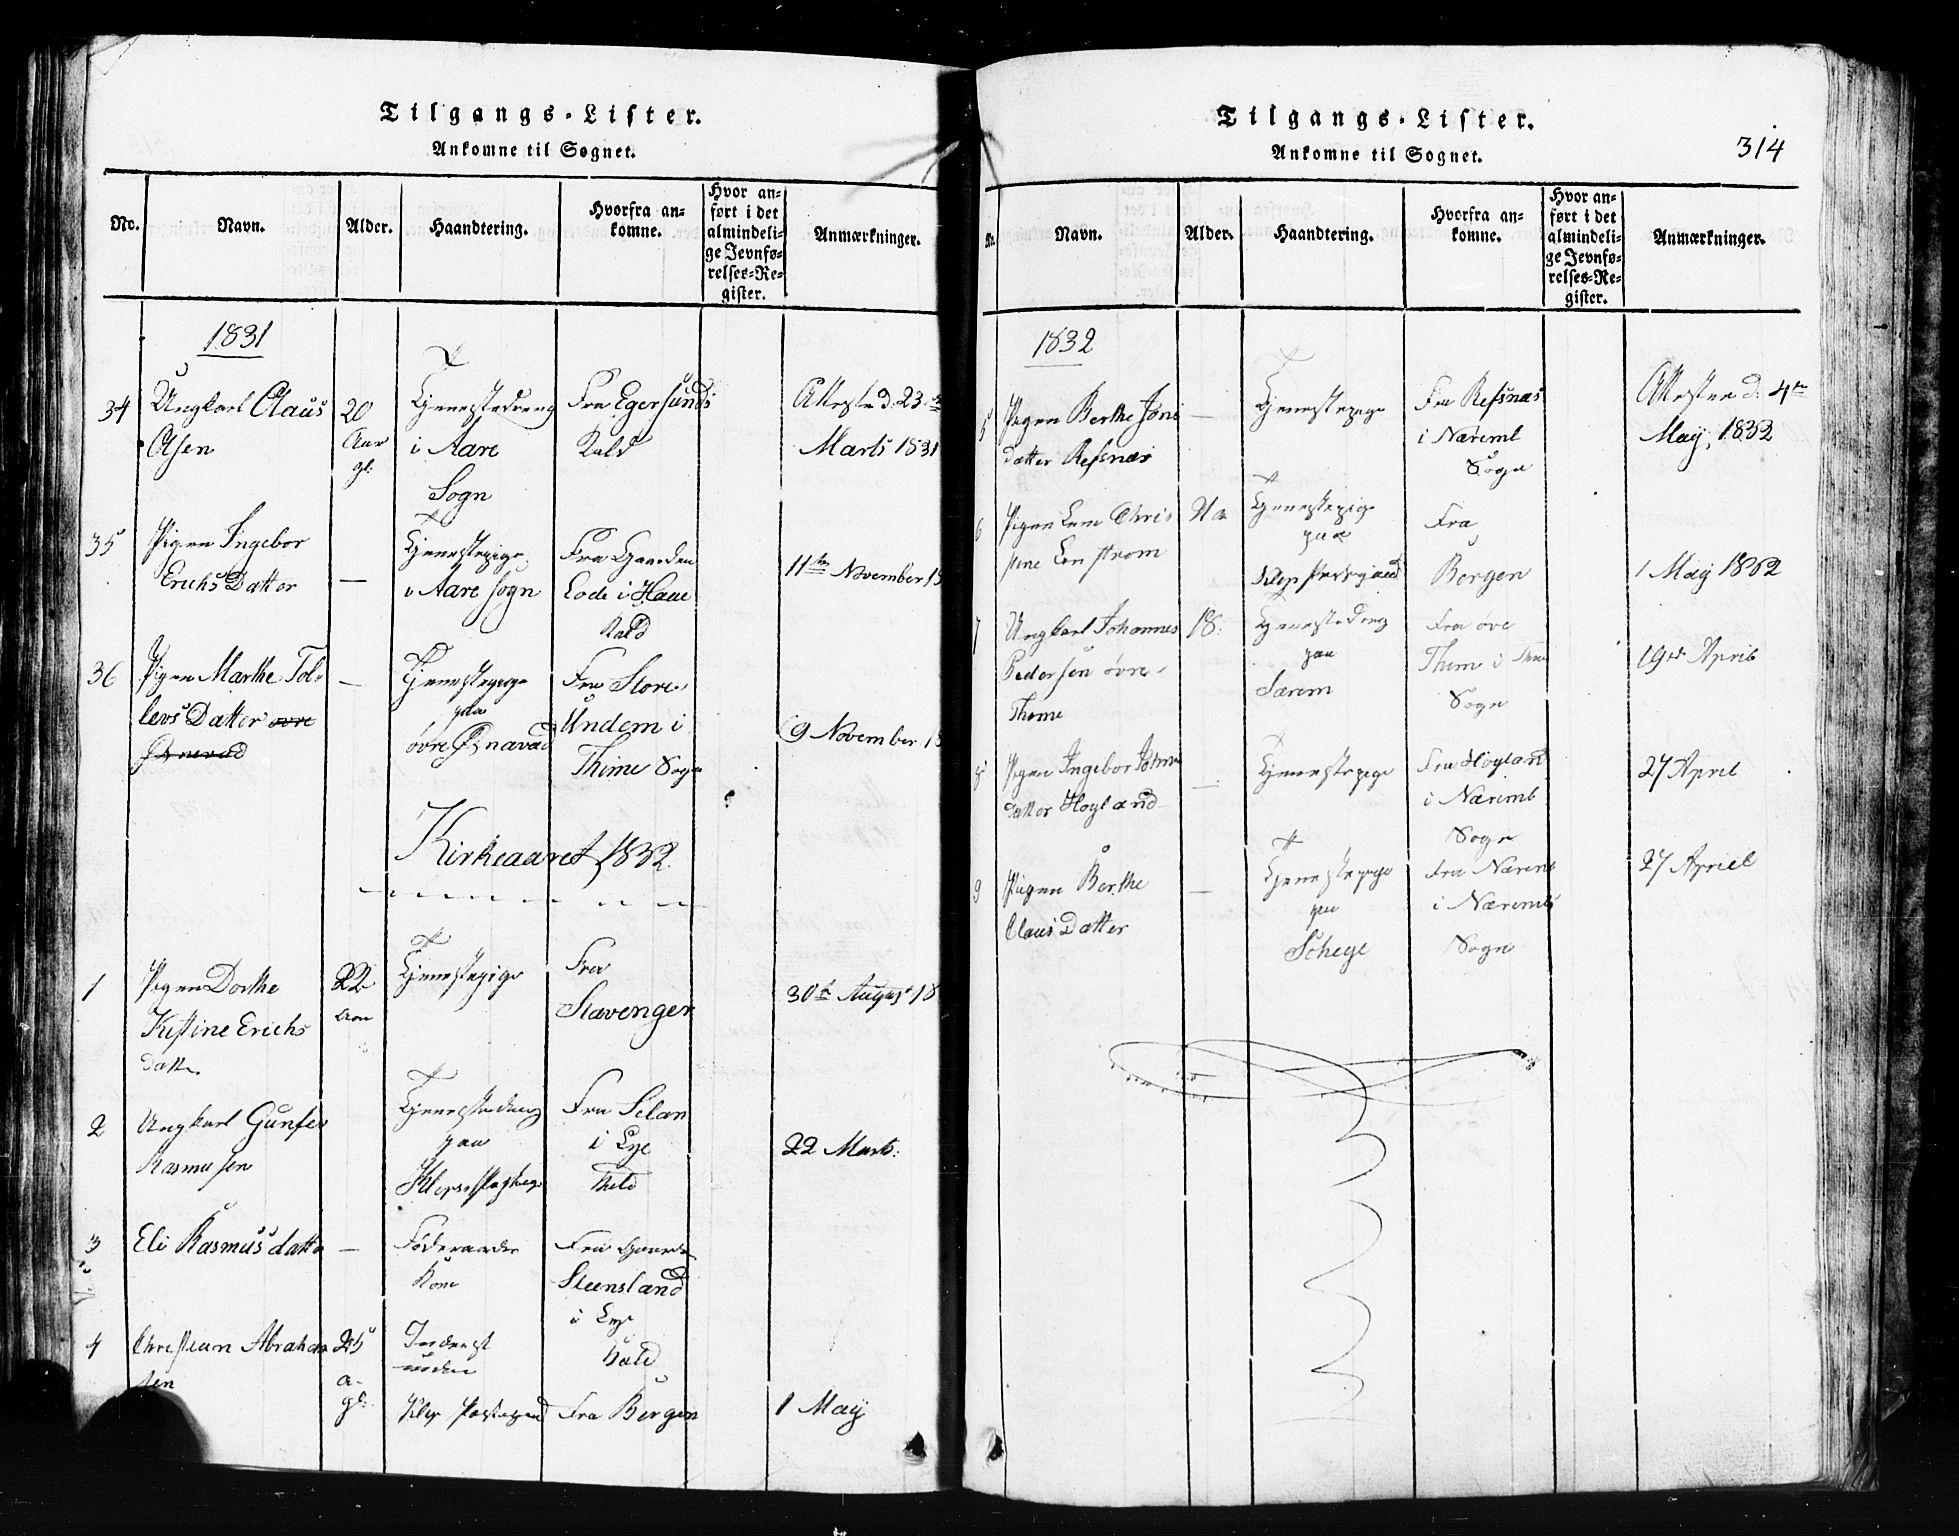 Tilgangs-Lister.
Ankomne til Sognet.
No.
Navn.
Alder.
Haandtering.
Hvorfra an-
komne.
Hvor an-
ført i det
almindeli-
ge Jevnfø-
relses-Re-
gister.
Anmærkninger.
1831
34
Ungkarl Claus
Olsen
20
Aar
gl:
Tjenestedreng
i Aare
Sogn
Fra Egersunds
Kald
Attest d. 23
Marts 1831
35
Pigen Ingebor
Erichs Datter
—
Tjenestepige
i Aare Sogn
Fra Gaarden
Lode i Haae
Kald
11te November 18
36
Pigen Marthe Tol-
levs Datter øvre
—
Tjenestepige
paa
øvre
Fra Store
Undem i
Thime Sogn
9 November 18
Kirkeaaret 1832.
1
Pigen Dorthe
Kistine Erichs
datter
22
Aar
Tjenestepige
Fra
Stavenger
30te August 18
2
Ungkarl
Rasmusen
Tjenestedreng
paa
Fra
i Lye
Kald
22 Marts:
3
Eli Rasmusdatter
—
Føderaads
Kone
Fra Gaarden
Steensland
i Lye
Kald
4
Christian Abraham
sen
25
a-
gl:
Inderst
under
Klep
Fra Bergen
1 May
Tilgangs-Lister.
Ankomne til Sognet.
314
No.
Navn.
Alder.
Haandtering.
Hvorfra an-
komne.
Hvor an-
ført i det
almindeli-
ge Jevnfø-
relses-Re-
gister.
Anmærkninger.
1832
5
Pigen Berthe Jons
datter Refsnæs
—
Tjenestepige
Fra Refsnæs
i Næremb
Sogn
Attesten d: 4te
May, 1832
6
Pigen
Tjenestepige
paa
Klep
Fra
Bergen
1 May 1832
7
Ungkarl Johannes
Pedersen øvre
Thime
18:
Tjenestedreng
paa
Særem
Fra øvre
Thime i
Sogn
19de April
8
Pigen Ingebor
datter Hoyland
—
Tjenestepige
Fra Høyland
i Næremb
Sogn
27 April
9
Pigen Berthe
Claus Datter
—
Tjenestepige
paa
Fra Næremb
i Næremb
Sogn
27 Apriel